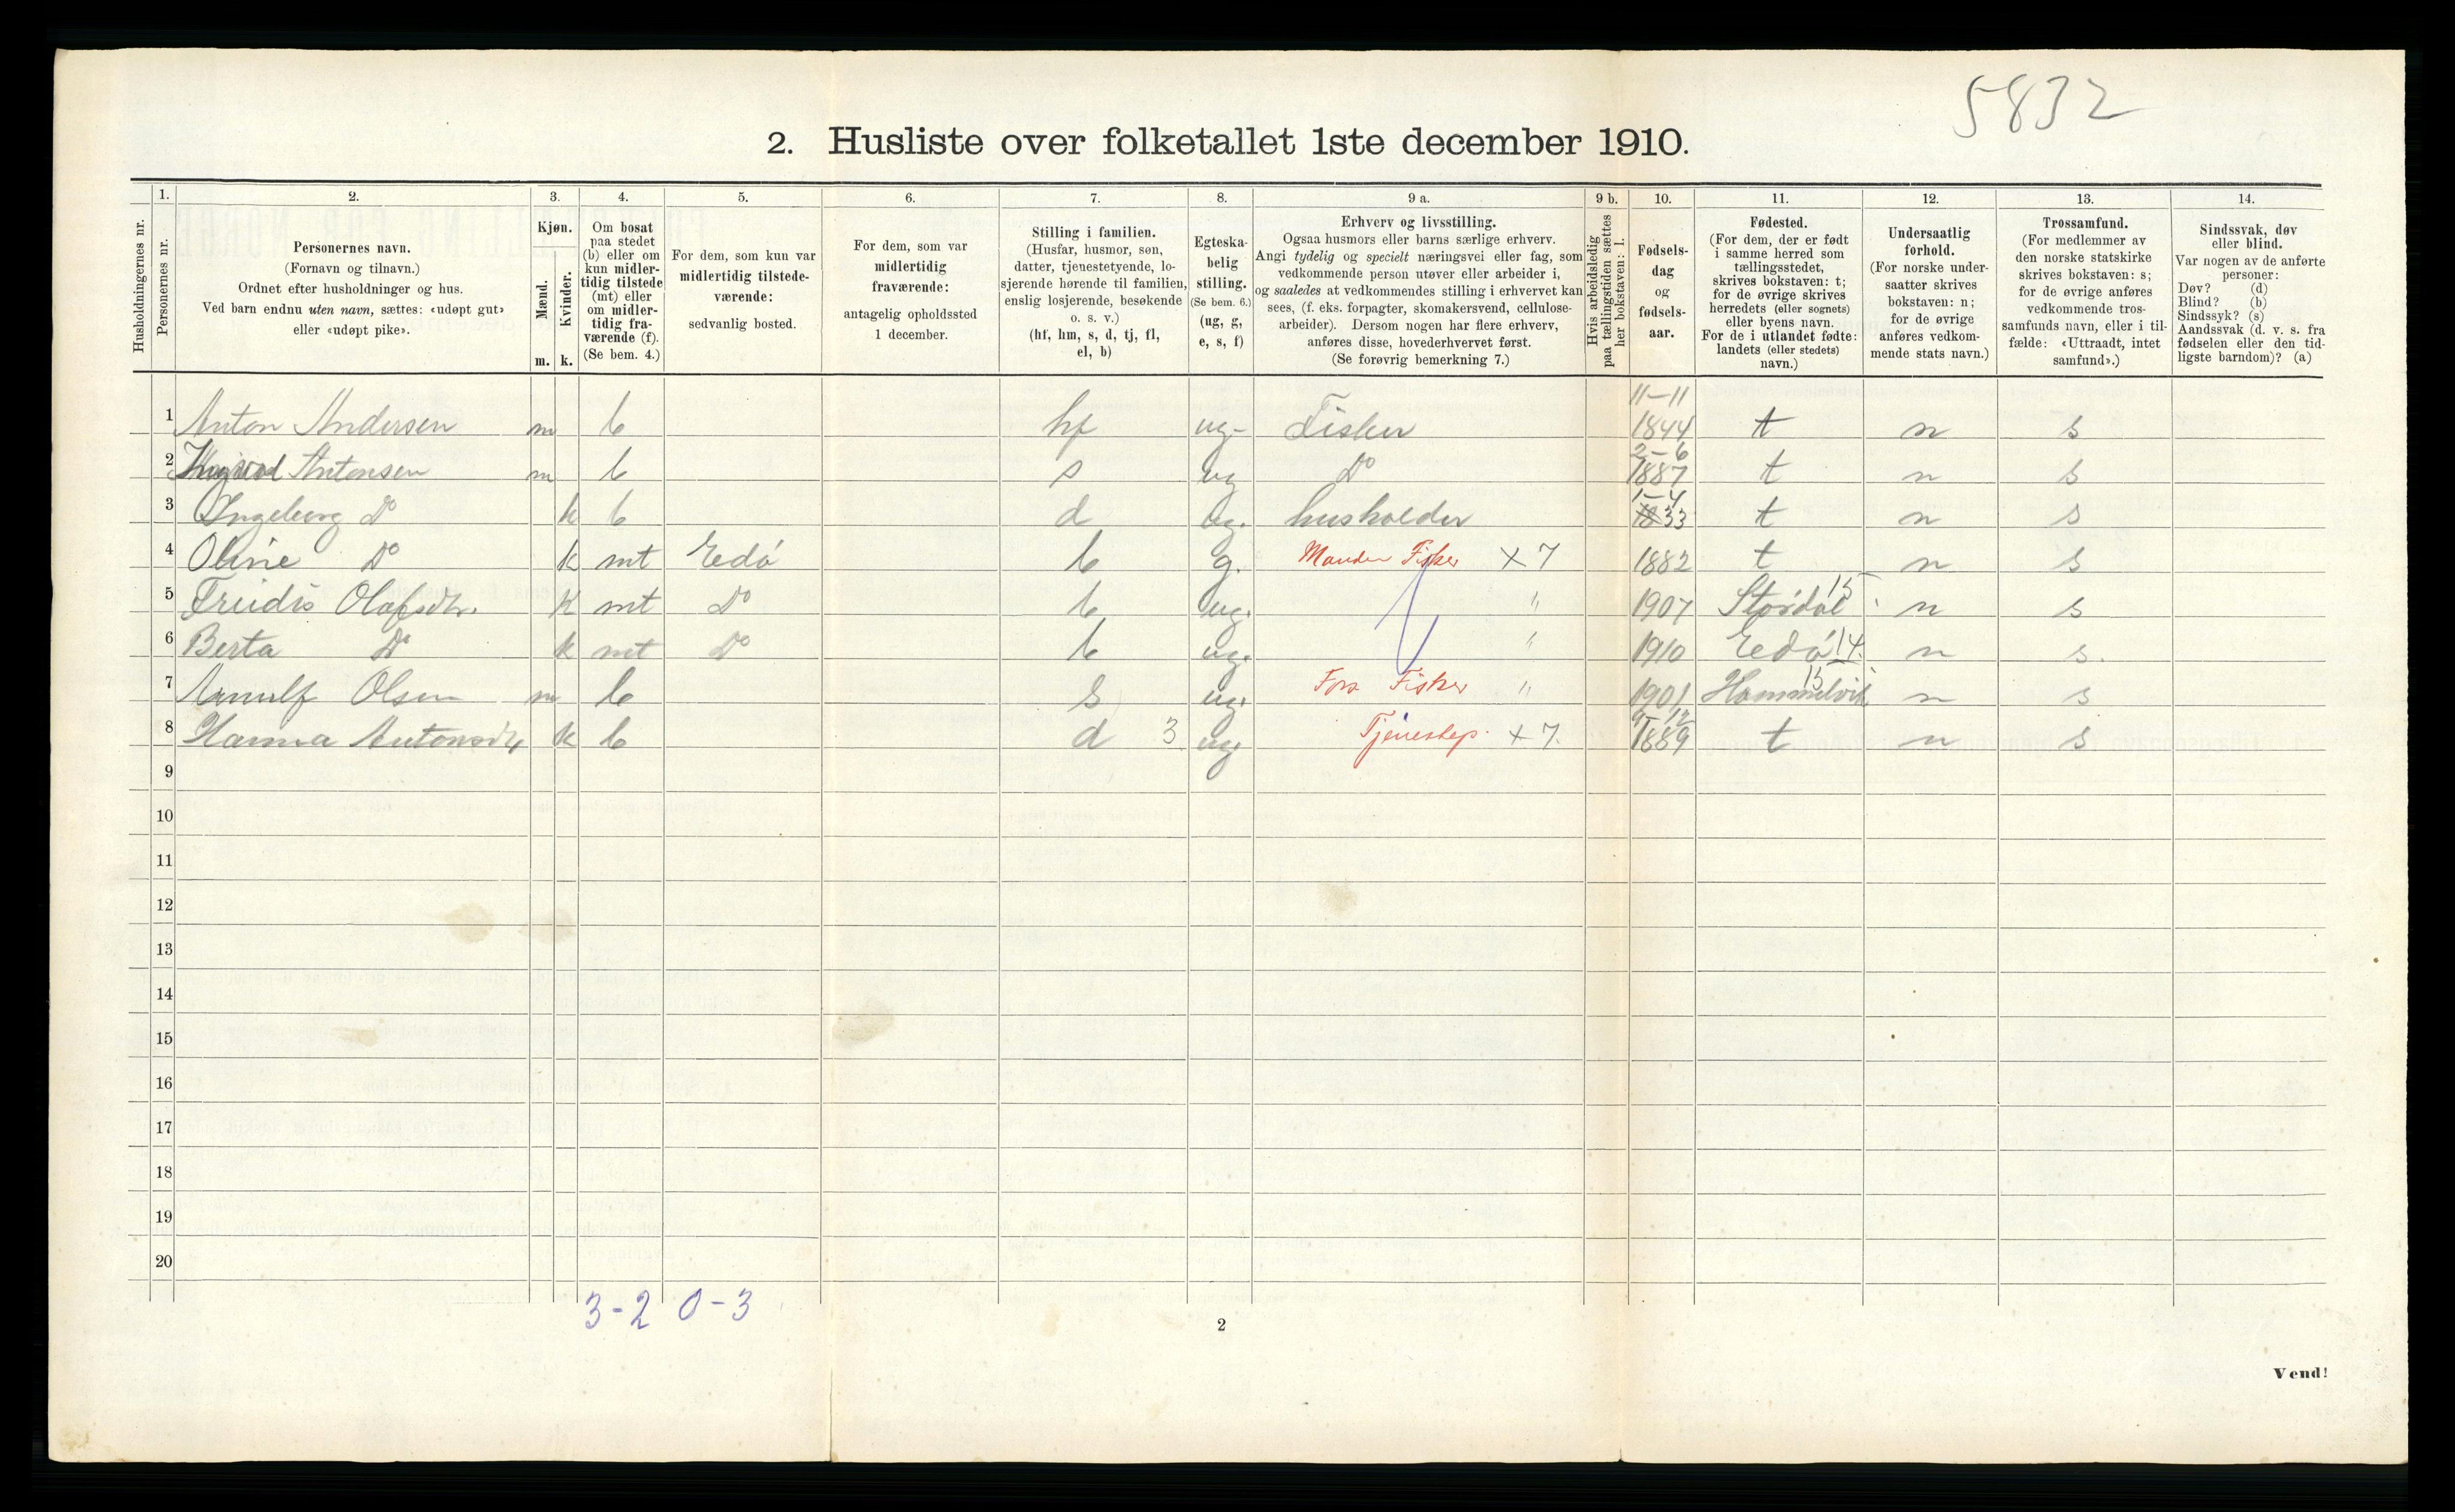 5832
2. Husliste over folketallet 1ste december 1910.
Husholdningernes nr.
1.
Personernes nr.
2.
Personernes navn.
(Fornavn og tilnavn.)
Ordnet efter husholdninger og hus.
Ved barn endnu uten navn, sættes: «udøpt gut»
eller «udøpt pike».
3.
Kjøn.
Mænd.
Kvinder.
m. k.
4.
Om bosat
paa stedet
(b) eller om
kun midler-
tidig tilstede
(mt) eller
om midler-
tidig fra-
værende (f).
(Se bem. 4.)
5.
For dem, som kun var
midlertidig tilstede-
værende:
sedvanlig bosted.
6.
For dem, som var
midlertidig
fraværende:
antagelig opholdssted
1 december.
7.
Stilling i familien.
(Husfar, husmor, søn,
datter, tjenestetyende, lo-
sjerende hørende til familien,
enslig losjerende, besøkende
o. s. v.)
(hf, hm, s, d, tj, fl,
el, b)
8.
Egteska-
belig
stilling.
(Se bem. 6.)
(ug, g,
e, s, f)
9 a.
Erhverv og livsstilling.
Ogsaa husmors eller barns særlige erhverv.
Angi tydelig og specielt næringsvei eller fag, som
vedkommende person utøver eller arbeider i,
og saaledes at vedkommendes stilling i erhvervet kan
sees, (f. eks. forpagter, skomakersvend, cellulose-
arbeider). Dersom nogen har flere erhverv,
anføres disse, hovederhvervet først.
(Se forøvrig bemerkning 7.)
9 b.
Hvis arbeidsledig
paa tællingstiden sættes
her bokstaven: l.
10.
Fødsels-
dag
og
fødsels-
aar.
11.
Fødested.
(For dem, der er født
i samme herred som
tællingsstedet,
skrives bokstaven: t;
for de øvrige skrives
herredets (eller sognets)
eller byens navn.
For de i utlandet fødte:
landets (eller stedets)
navn.)
12.
Undersaatlig
forhold.
(For norske under-
saatter skrives
bokstaven: n;
for de øvrige
anføres vedkom-
mende stats navn.)
13.
Trossamfund.
(For medlemmer av
den norske statskirke
skrives bokstaven: s;
for de øvrige anføres
vedkommende tros-
samfunds navn, eller i til-
fælde: «Uttraadt, intet
samfund».)
14.
Sindssvak, døv
eller blind.
Var nogen av de anførte
personer:
Døv? (d)
Blind? (b)
Sindssyk? (s)
Aandssvak (d. v. s. fra
fødselen eller den tid-
ligste barndom)? (a)
1 Anton Andersen m b hf ug- Fisker 11-11 1844 t n s
2 Antonsen m b s ug Do 2-6 1887 t n s
3 Ingeborg Do k b d ug. husholder 1-4 33 t n s
4 Oline Do k mt Edø b g. Manden Fisker X 7 1882 t n s
5 Olafsdtr. k mt Do b ug. " 1907 Stordal 15 n s
6 Berta Do k mt Do b ug. " 1910 Edø 14. n s.
7 Arnulf Olsen m b s ug. Fors Fisker " 1901 Hommelvik 15 n s
8 Hanna Antonsdtr k b d 3 ug Tjenestep. X 7. 9-12 1889 t n s
9
10
11
12
13
14
15
16
17
18
19
20
3-2 0-3
2
Vend!